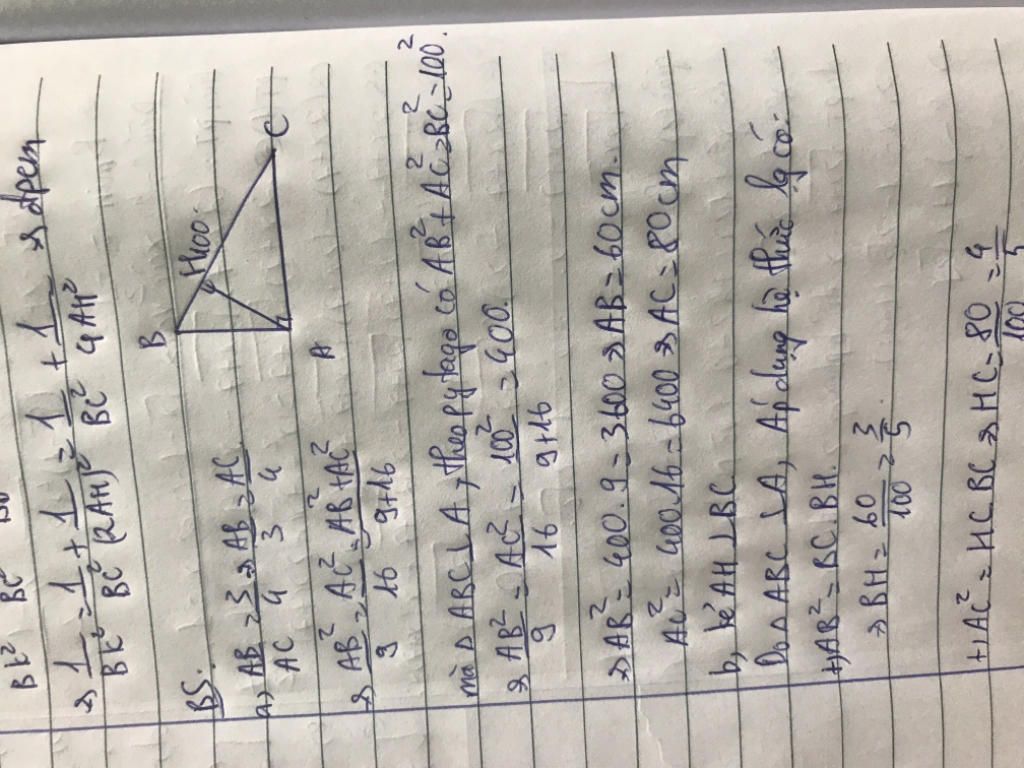 BK² BC² 
=> 1/BK² = 1/BC² + 1/(2AH)² = 1/BC² + 1/4AH² => đpcm
B5.
B
H 100.
C
A
a, AB/AC = 3/4 => AB/3 = AC/4
=> AB²/9 = AC²/16 = AB²+AC²/9+16
mà Δ ABC ⊥ A, theo pytago có AB² + AC² = BC² = 100².
=> AB²/9 = AC²/16 = 100²/9+16 = 400.
=> AB² = 400.9 = 3600 => AB = 60cm.
AC² = 400.16 = 6400 => AC = 80cm
b, kẻ AH ⊥ BC
Do Δ ABC ⊥ A, Áp dụng hệ thức lg có:
+, AB² = BC.BH.
=> BH = 60/100 = 3/5
+, AC² = HC.BC => HC = 80/100 = 4/5